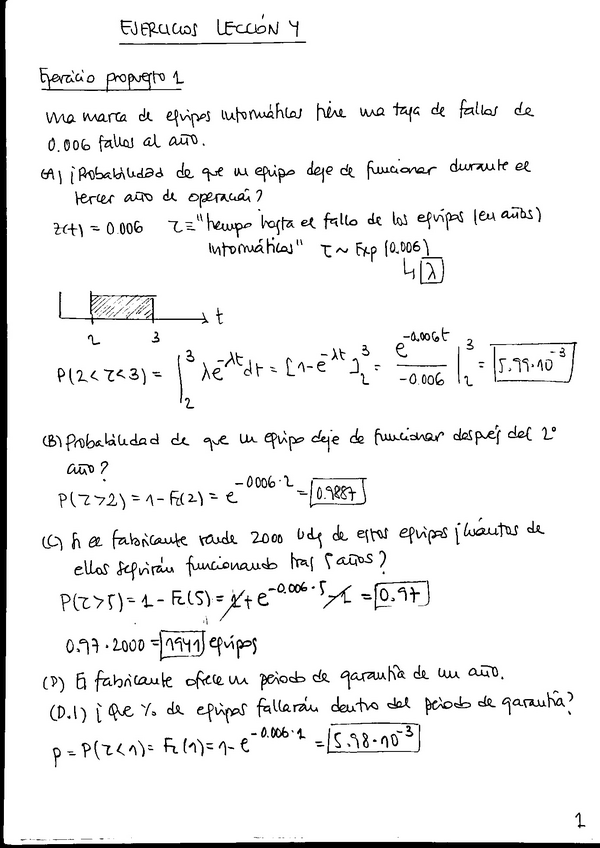 EJERCICIOS LECCIÓN 4
Ejercicio propuesto 1
Una marca de equipos informáticos tiene una tasa de fallos de
0.006 fallos al año.
(A) ¿Probabilidad de que un equipo deje de funcionar durante el
tercer año de operación?
z(t) = 0.006 τ ≡ "tiempo hasta el fallo de los equipos (en años)
informáticos" τ ~ Exp (0.006)
↳ λ
t
2 3
P(2<τ<3) = ∫₂³ λe^{-λt} dt = [1-e^{-λt}]₂³ = e^{-0.006t} / -0.006 |₂³ = 5.99·10^{-3}
(B) Probabilidad de que un equipo deje de funcionar después del 2º
año?
P(τ>2) = 1 - Fτ(2) = e^{-0.006·2} = 0.9887
(C) Si el fabricante vende 2000 uds de estos equipos ¿Cuántos de
ellos seguirán funcionando tras 5 años?
P(τ>5) = 1 - Fτ(5) = 1 + e^{-0.006·5} - 1 = 0.97
0.97 · 2000 = 1941 equipos
(D) El fabricante ofrece un periodo de garantía de un año.
(D.1) ¿Que % de equipos fallarán dentro del periodo de garantía?
p = P(τ<1) = Fτ(1) = 1 - e^{-0.006·1} = 5.98·10^{-3}
1